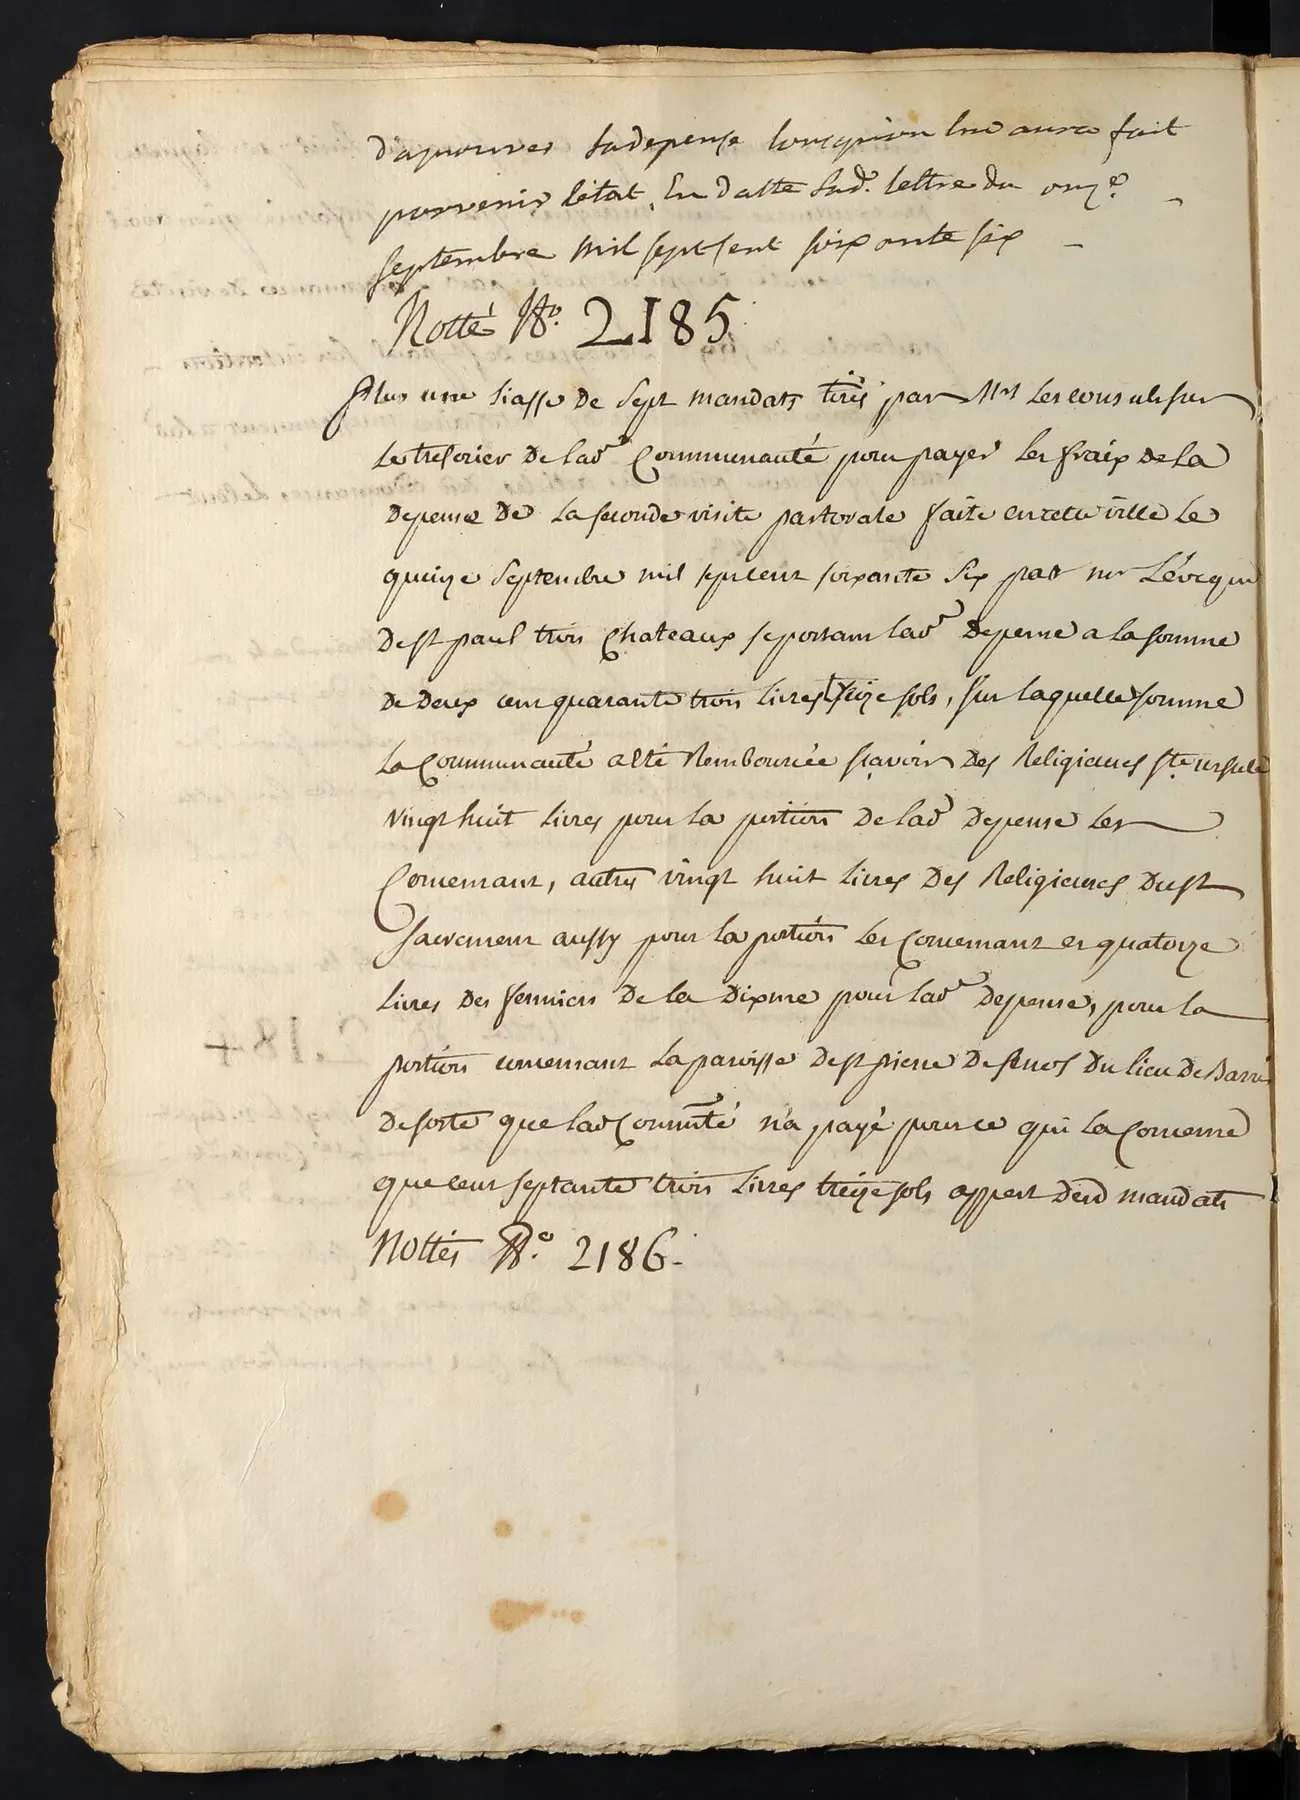 d'aprouver sa depense lorsqu'on luy aura fait
parvenir l'état, En datte lad.e lettre du onz.e
septembre mil sept sent soixante six
Notté N.o 2185
Plus une liasse de sept mandats tirés par Mrs les consuls sur
le tresorier de lad.e Communauté pour payer les fraix de la
depense de la seconde visite pastorale faite en cette ville le
quinze septembre mil sept cent soixante six par mr L'évêque
de st paul trois Chateaux se portant lad.e depense a la somme
de deux cent quarante trois livres treize sols, sur laquelle somme
la Communauté a été Remboursée sçavoir des Religieuses ste ursule
vingt huit livres pour la portion de lad.e depense les
Concernant, autres vingt huit livres des Religieuses du st
sacrement aussy pour la portion les Concernant et quatorze
livres des fermiers de la dixme pour lad.e depense, pour la
portion concernant la paroisse de st pierre de senos du lieu de Barri
de sorte que lad Commté n'a payé pour ce qui la Concerne
que cent septante trois livres treize sols appert desd mandats
Nottés N.o 2186.